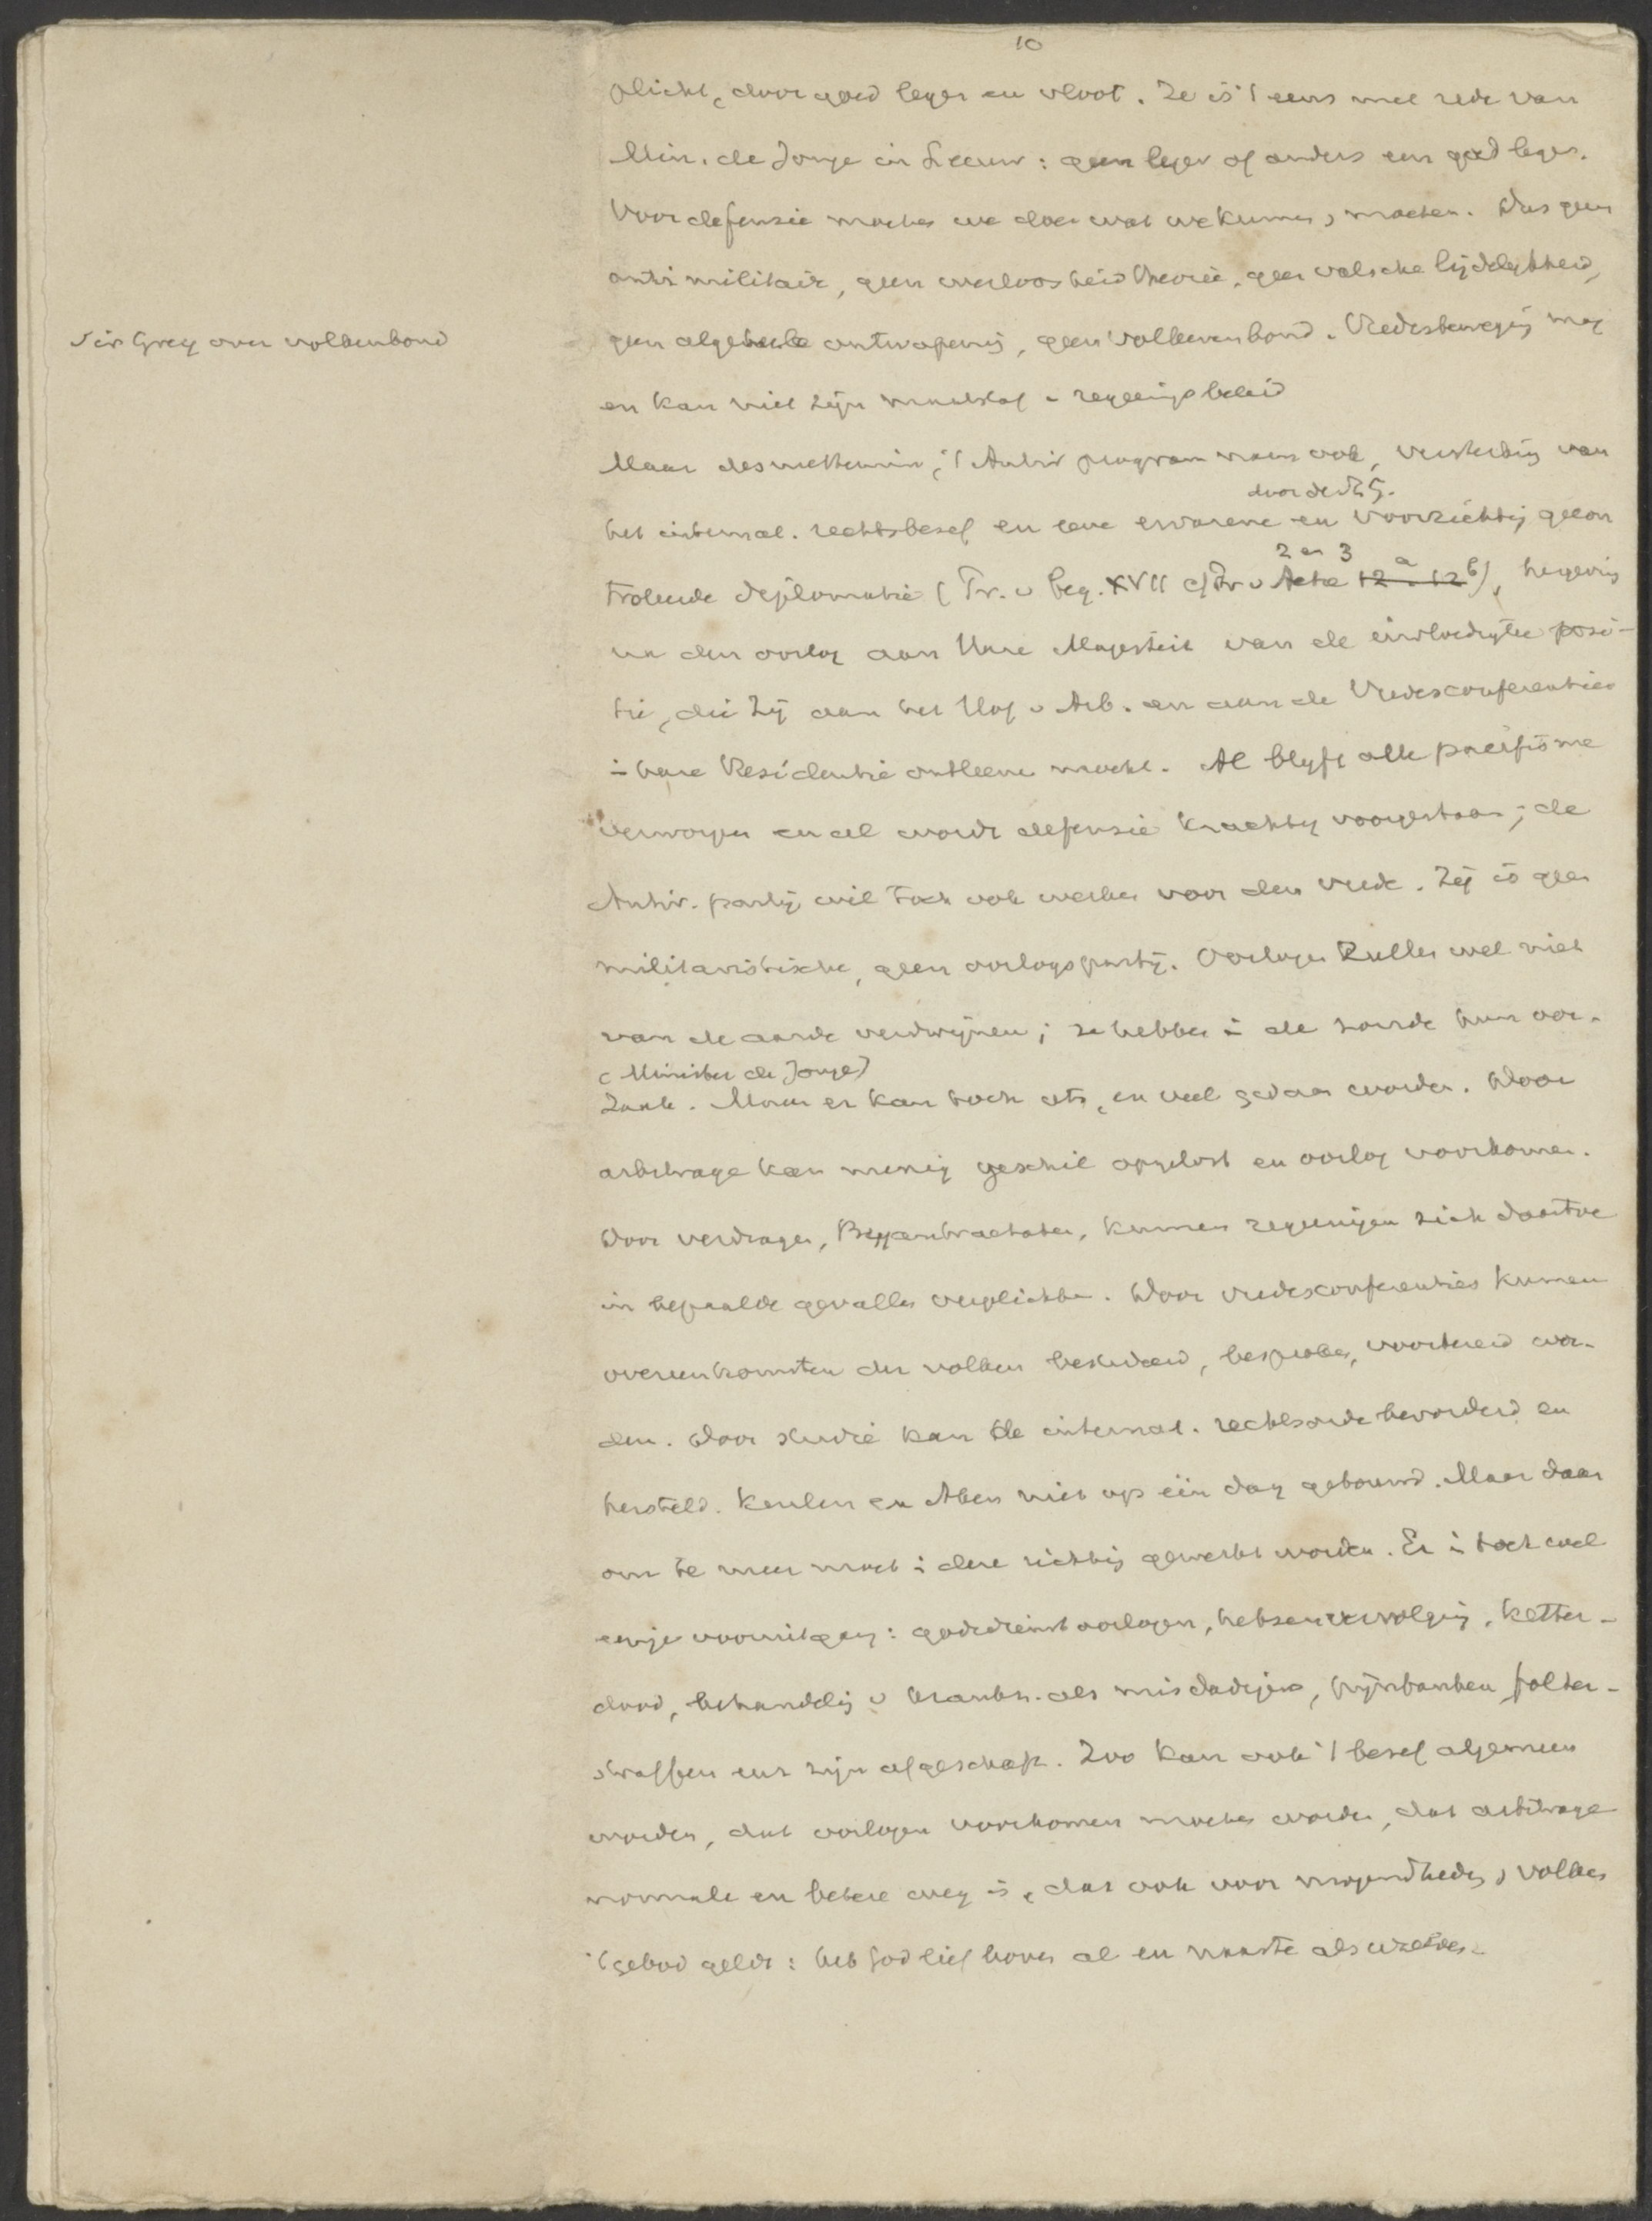 10
plicht, door goed leger en vloot. Ze is 't eens met rede van
Min. de Jonge in Leeuw: geen leger of anders een goed leger.
Voor defensie moeten we doen wat we kunnen, moeten. Dus geen
anti militair, geen weerloosheid theorie, geen valsche lijdelykheid,
Sir Grey over volkenbond
geen algeheele ontwapening, geen volkerenbond. Vredesbeweging mag
en kan niet zijn maatstaf v regeeringsbeleid
Maar desniettemin, 't Antir program wenscht ook, versterking van
het internat. rechtsbesef en eene ervarene en voorzichtig gecon
troleerde diplomatie (Tr. v beg. XVII Acte 2 en 3 12a 12b), hergeving
na den oorlog aan Hare Majesteit van de invloedryke posi-
tie, die Zij aan het Hof v Arb. en aan de Vredesconferenties
in hare Residentie ontleenen mocht. Al blyft alle pacifisme
verworpen en al wordt defensie krachtig voorgestaan; de
Antir. partij wil toch ook werken voor den vrede. Zij is geen
militaristische, geen oorlogspartij. Oorlogen zullen wel niet
van de aarde verdwijnen; ze hebben in de zonde hun oor-
(Minister de Jonge)
zaak. Maar er kan toch iets, en veel gedaan worden. Door
arbitrage kan menig geschil opgelost en oorlog voorkomen.
Door verdragen, Bryantractaten, kunnen regeeringen zich daartoe
in bepaalde gevallen verplichten. Door vredesconferenties kunnen
overeenkomsten der volken bestudeerd, besproken, voorbereid wor-
den. Door studie kan de internat. rechtsorde bevorderd en
hersteld. Keulen en Aken niet op één dag gebouwd. Maar daar
om te meer moet in deze richting gewerkt worden. Er is toch wel
eenige vooruitgang: godsdienstoorlogen, heksenvervolging, ketter-
dood, behandeling v krankz. als misdadigers, pijnbanken folter-
straffen enz zijn afgeschaft. Zoo kan ook 't besef algemeen
worden, dat oorlogen voorkomen moeten worden, dat arbitrage
normale en betere weg is, dat ook voor mogendheden, volken
't gebod geldt: heb God lief boven al en naaste als uzelven.